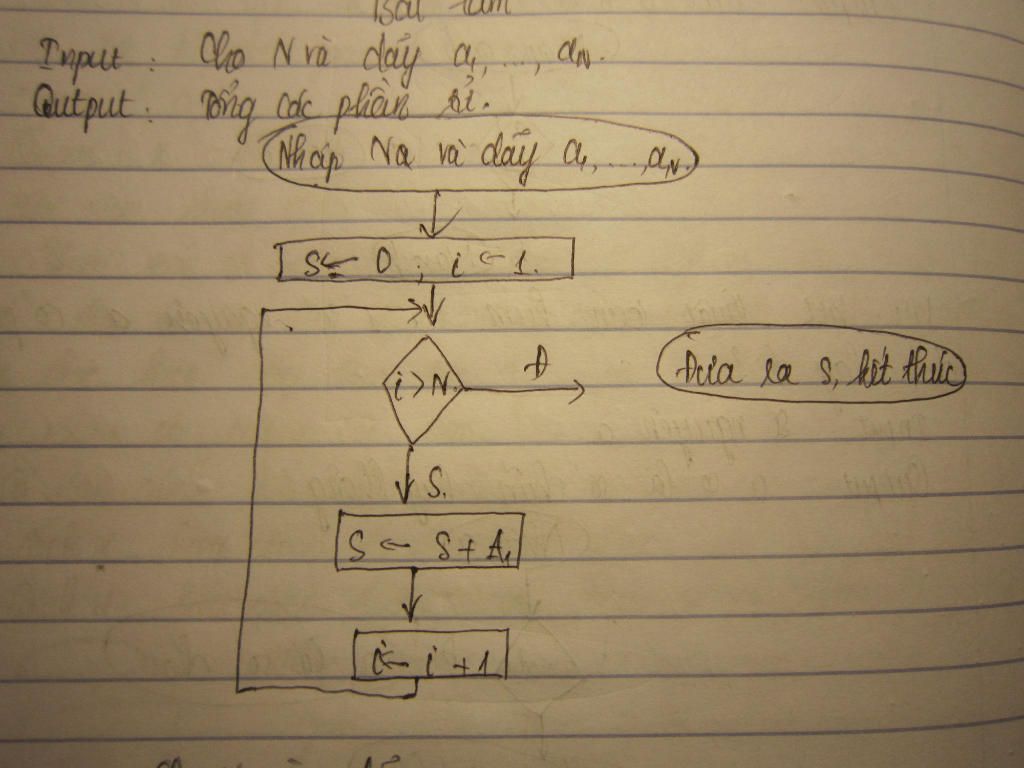 Input : Cho N và dãy a1, ..., aN.
Output : Tổng các phần tử.
Nhập Na và dãy a1, ..., aN.
S ← 0 ; i ← 1.
i > N
Đ
Đưa ra S, kết thúc
S.
S ← S + A1
i ← i + 1